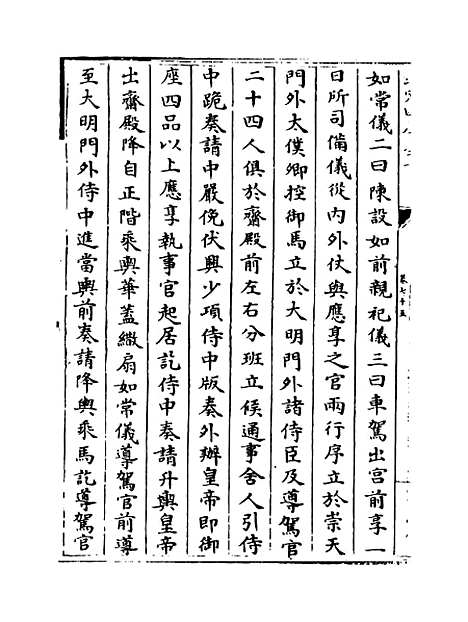 如常儀二曰陳設如前親祀儀三曰車駕出宫前享一
日所司備儀從内外仗與應享之官兩行序立於崇天
門外太僕卿控御馬立於大明門外諸侍臣及導駕官
二十四人俱於齋殿前左右分班立候通事舍人引侍
中跪奏請中嚴俛伏興少頃侍中版奏外辦皇帝即御
座四品以上應享執事官起居訖侍中奏請升輿皇帝
出齋殿降自正階乘輿華蓋繖扇如常儀導駕官前導
至大明門外侍中進當輿前奏請降輿乘馬訖導駕官
卷七十五